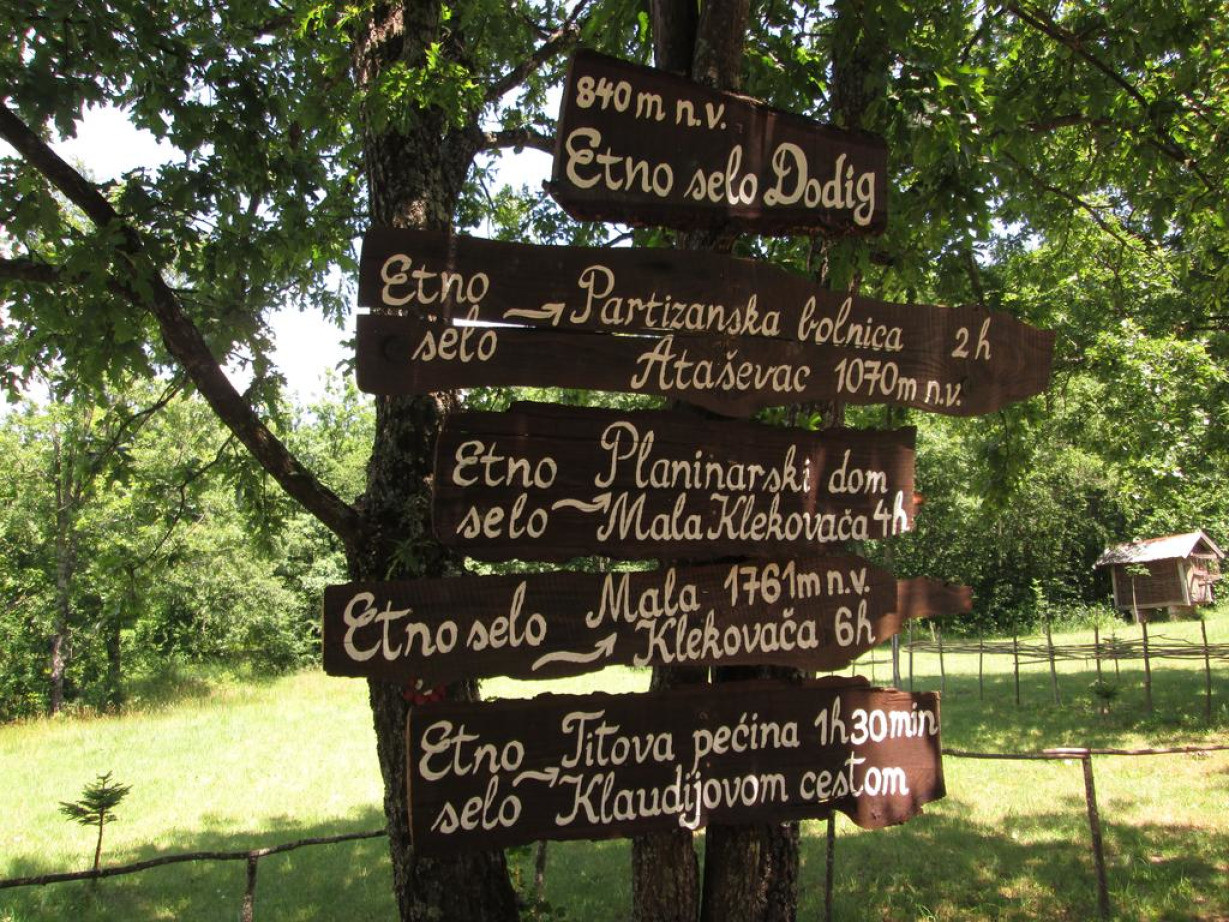 840m n.v.
Etno selo Dodig
Etno → Partizanska bolnica 2h
selo Ataševac 1070m n.v.
Etno Planinarski dom
selo → Mala Klekovača 4h
Etno selo → Mala 1761m n.v.
Klekovača 6h
Etno → Titova pećina 1h30min
selo Klaudijovom cestom